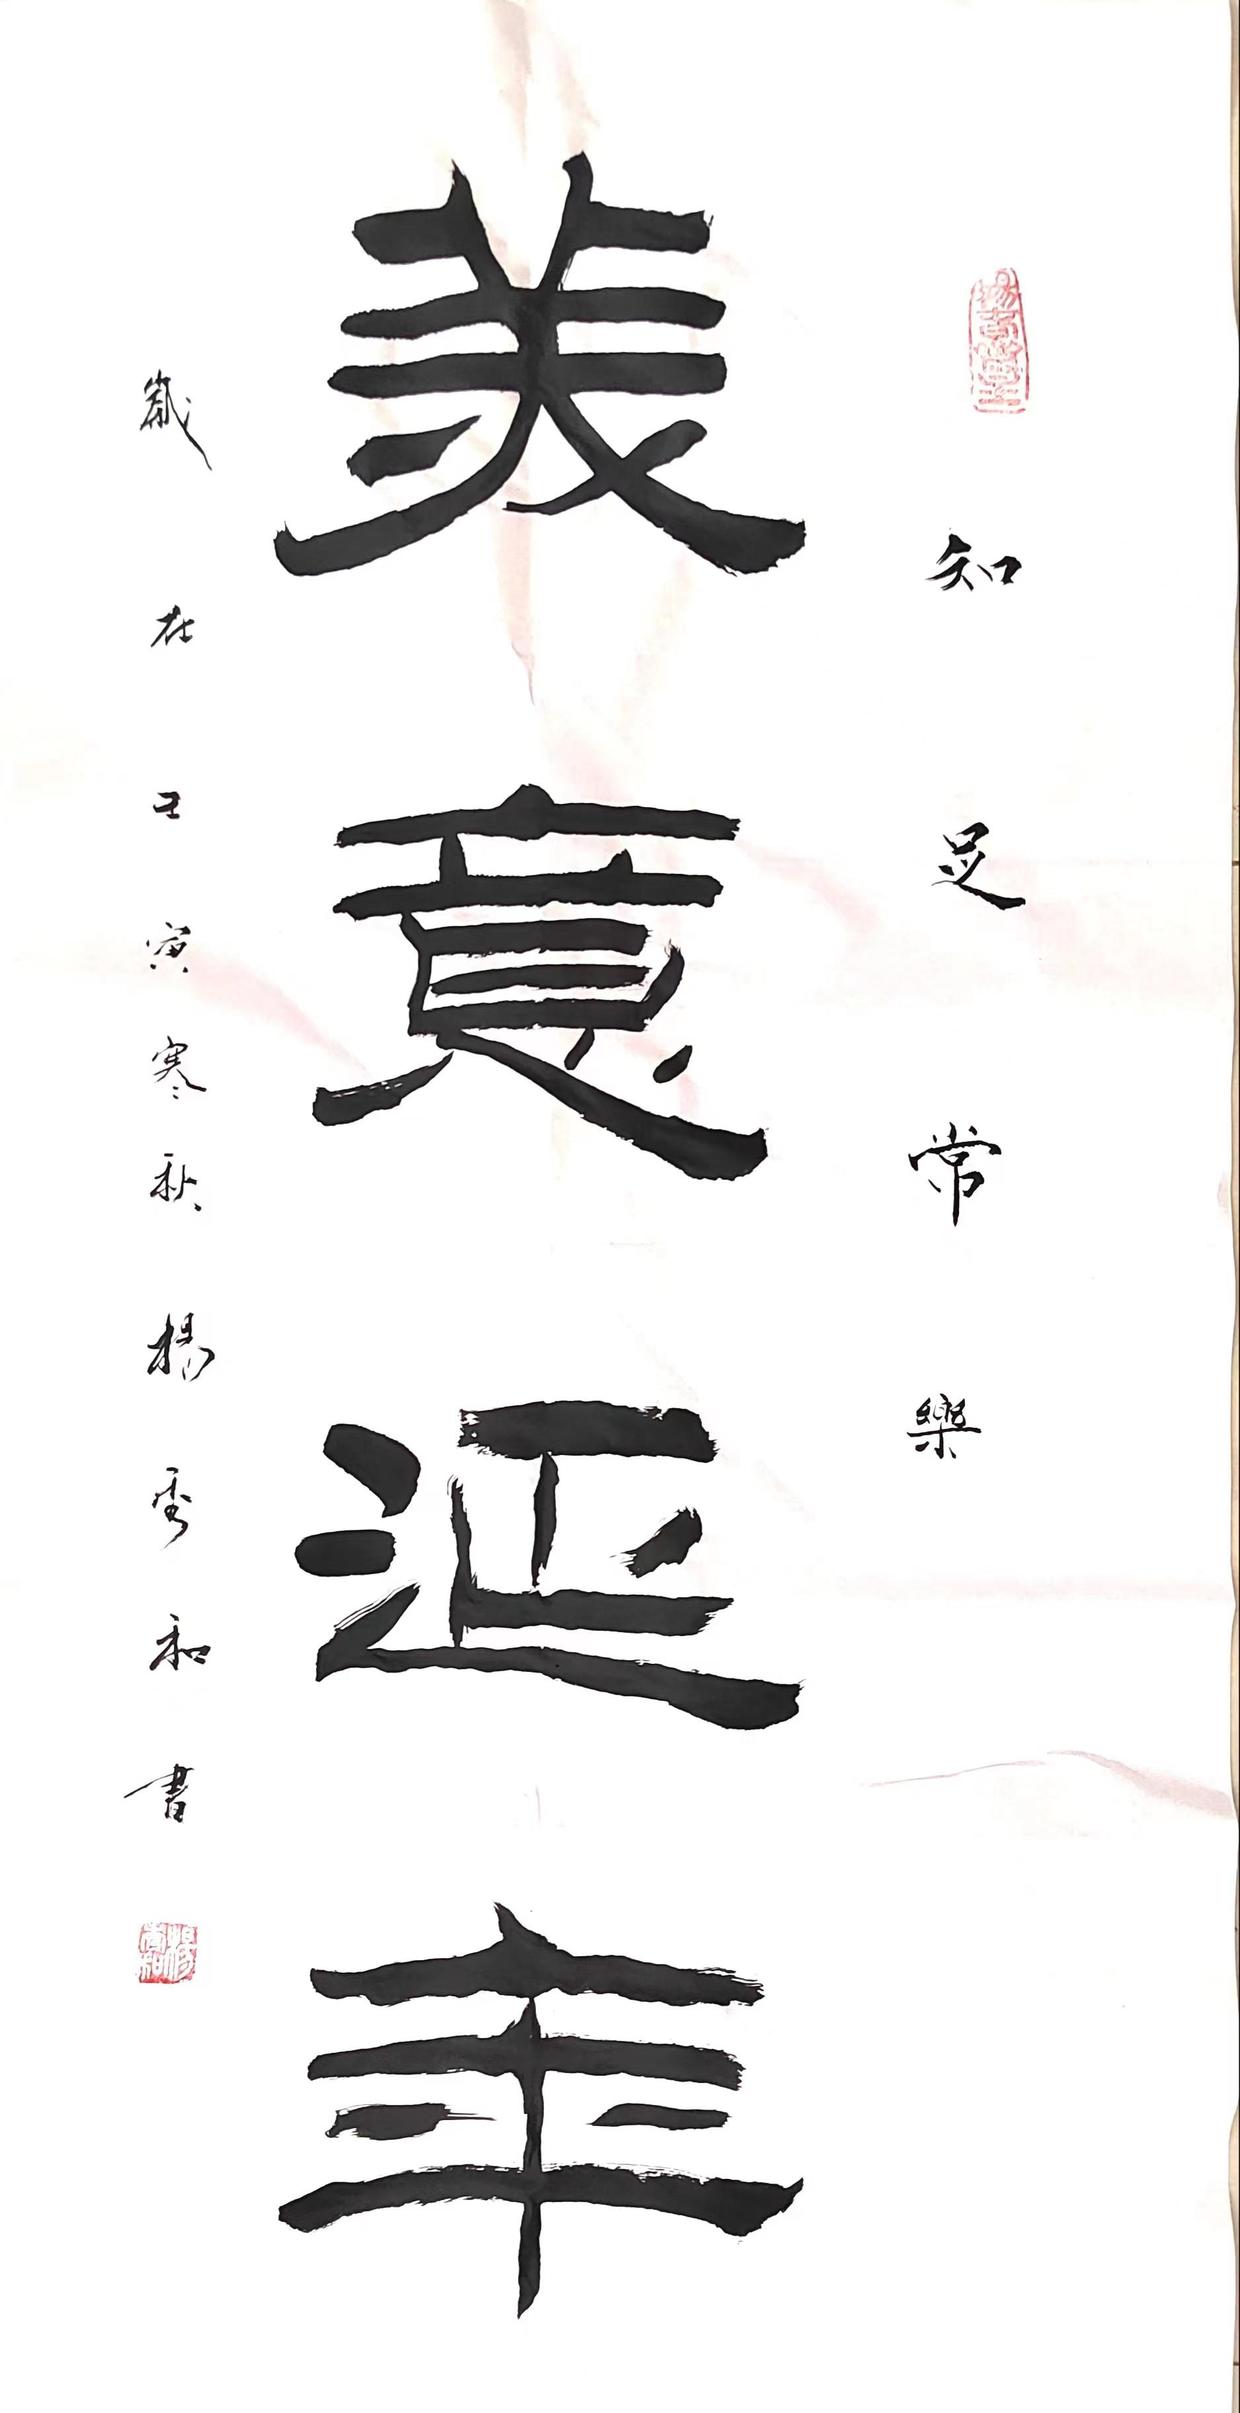 知足常樂
美意延年
歲在壬寅寒秋楊秀和書